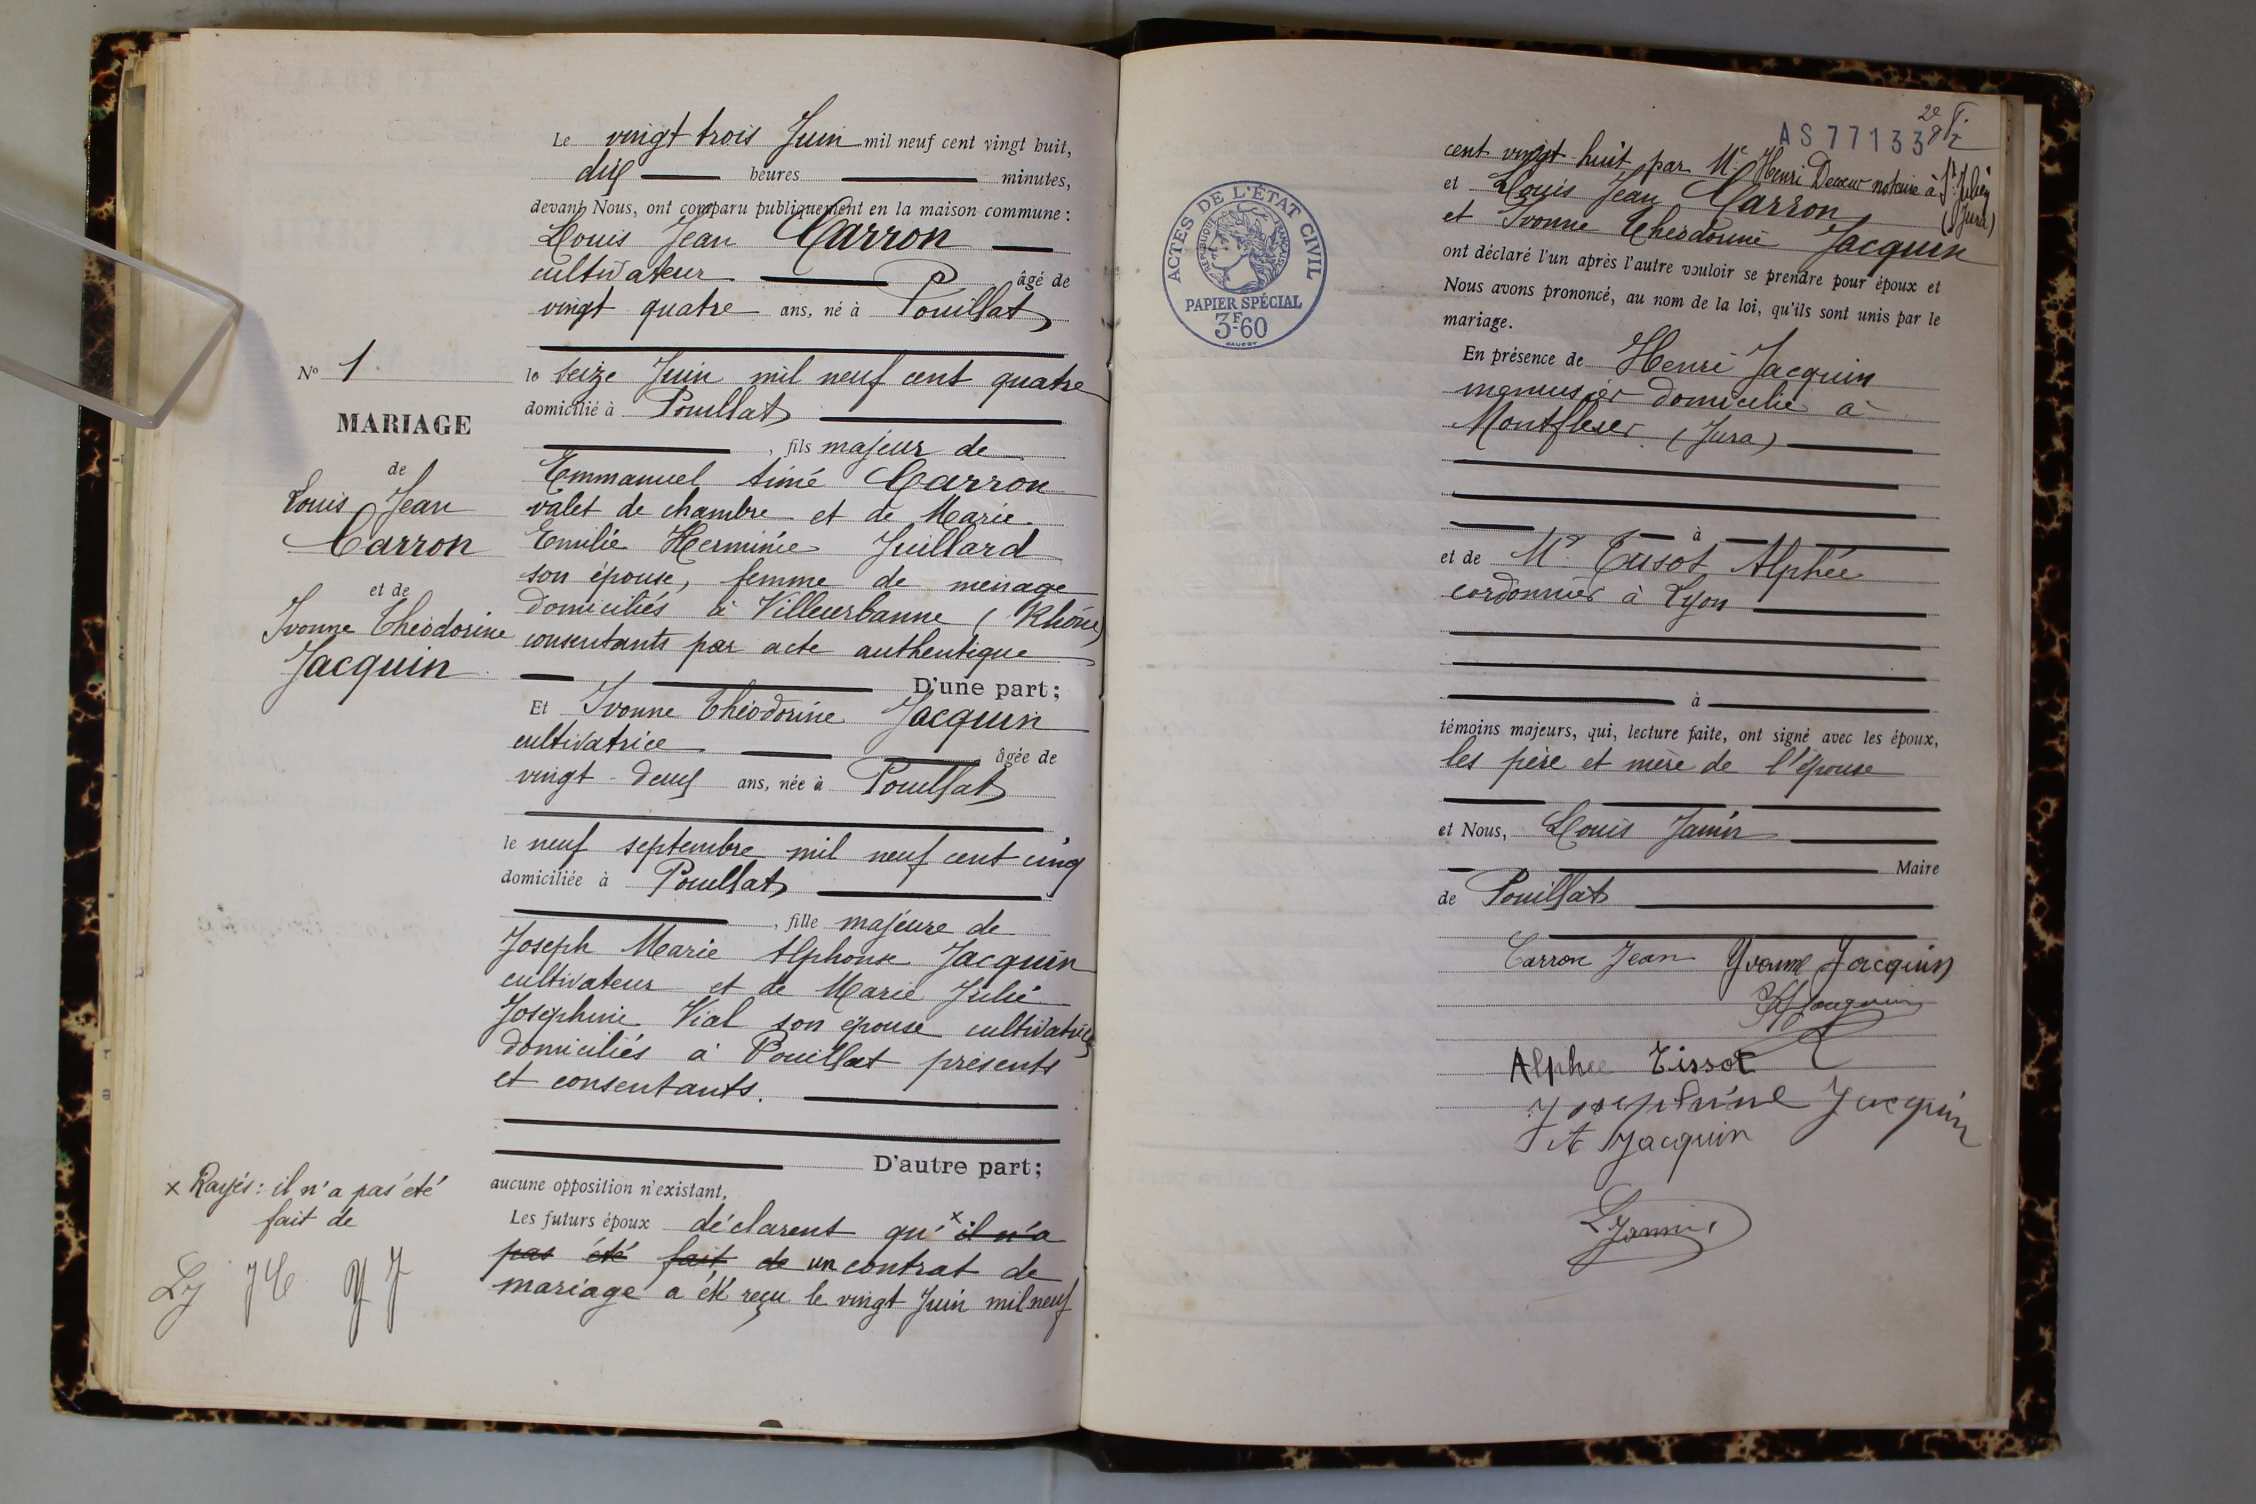 Le vingt trois Juin mil neuf cent vingt huit,
dix heures minutes,
devant Nous, ont comparu publiquement en la maison commune :
Louis Jean Carron
cultivateur âgé de
vingt quatre ans, né à Pouillat
No 1
le seize Juin mil neuf cent quatre
domicilié à Pouillat
MARIAGE
, fils majeur de
de
Louis Jean
Carron
et de
Ivonne Théodorine
Jacquin
Emmanuel Aimé Carron
valet de chambre et de Marie
Emilie Herminie Juillard
son épouse, femme de ménage
domiciliés à Villeurbanne (Rhône)
consentants par acte authentique
D'une part ;
Et Ivonne Théodorine Jacquin
cultivatrice âgée de
vingt-deux ans, née à Pouillat
le neuf septembre mil neuf cent cinq
domiciliée à Pouillat
, fille majeure de
Joseph Marie Alphonse Jacquin
cultivateur et de Marie Julie
Josephine Vial son épouse cultivatrice
domiciliés à Pouillat présents
et consentants.
D'autre part ;
x Rayés : il n'a pas été
fait de
LJ JC YJ
aucune opposition n'existant,
Les futurs époux déclarent qu' x il n'a
pas été fait de un contrat de
mariage a été reçu le vingt Juin mil neuf
AS77133
ACTES DE L'ÉTAT CIVIL
RÉPUBLIQUE FRANÇAISE
PAPIER SPÉCIAL
3F60
cent vingt huit, par Me Henri notaire à St Julien
(Jura)
et Louis Jean Carron
et Ivonne Théodorine Jacquin
ont déclaré l'un après l'autre vouloir se prendre pour époux et
Nous avons prononcé, au nom de la loi, qu'ils sont unis par le
mariage.
En présence de Henri Jacquin
menuisier domicilié à
Montfleur (Jura)
à
et de Mr Tissot Alphée
cordonnier à Lyon
à
témoins majeurs, qui, lecture faite, ont signé avec les époux,
les père et mère de l'épouse
et Nous, Louis Janin
Maire
de Pouillat
Carron Jean Yvonne Jacquin
Alphee Tissot
Joséphine Jacquin
A Jacquin
L Janin